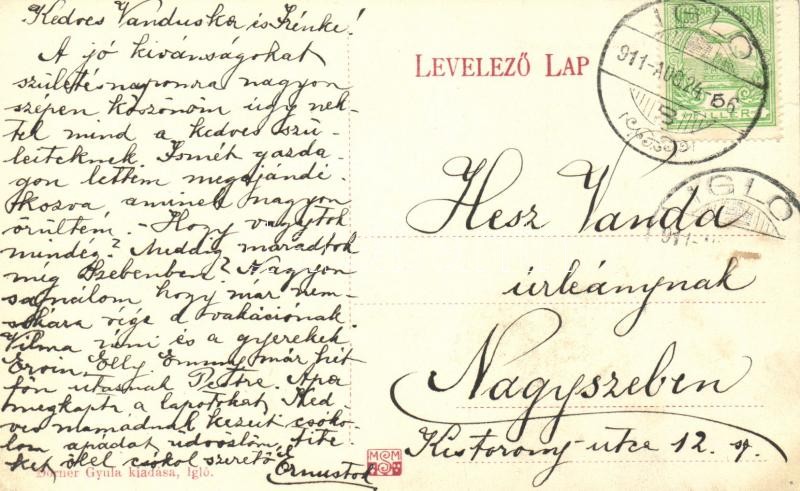 Kedves Vanduska és Irénke!
A jó kivánságokat
születésnapomra nagyon
szépen köszönöm úgy nek-
tek mind a kedves szü-
leiteknek. Ismét gazda-
gon lettem megajándé-
kozva, aminek nagyon
örültem. - Hogy vagytok
mindég? Meddig maradtok
még Szebenben? Nagyon
sajnálom hogy már nem-
sokára vége a vakációnak.
Vilma néni és a gyerekek
Ervin, Elly, Emmy már hét
főn utaznak Pestre. Apa
megkapta a lapotokat. Ked
ves mamádnak kezeit csóko-
lom apádat üdvözlöm, tite
ket ölel csókol szerető
Ernustok
Dorner Gyula kiadása, Igló.
LEVELEZŐ LAP
MAGYAR KIR. POSTA
FILLÉR
IGLÓ
911-AUG.24-
IGLO
911-
Hesz Vanda
úrleánynak
Nagyszeben
Kistorony-utca 12. sz.
MSM